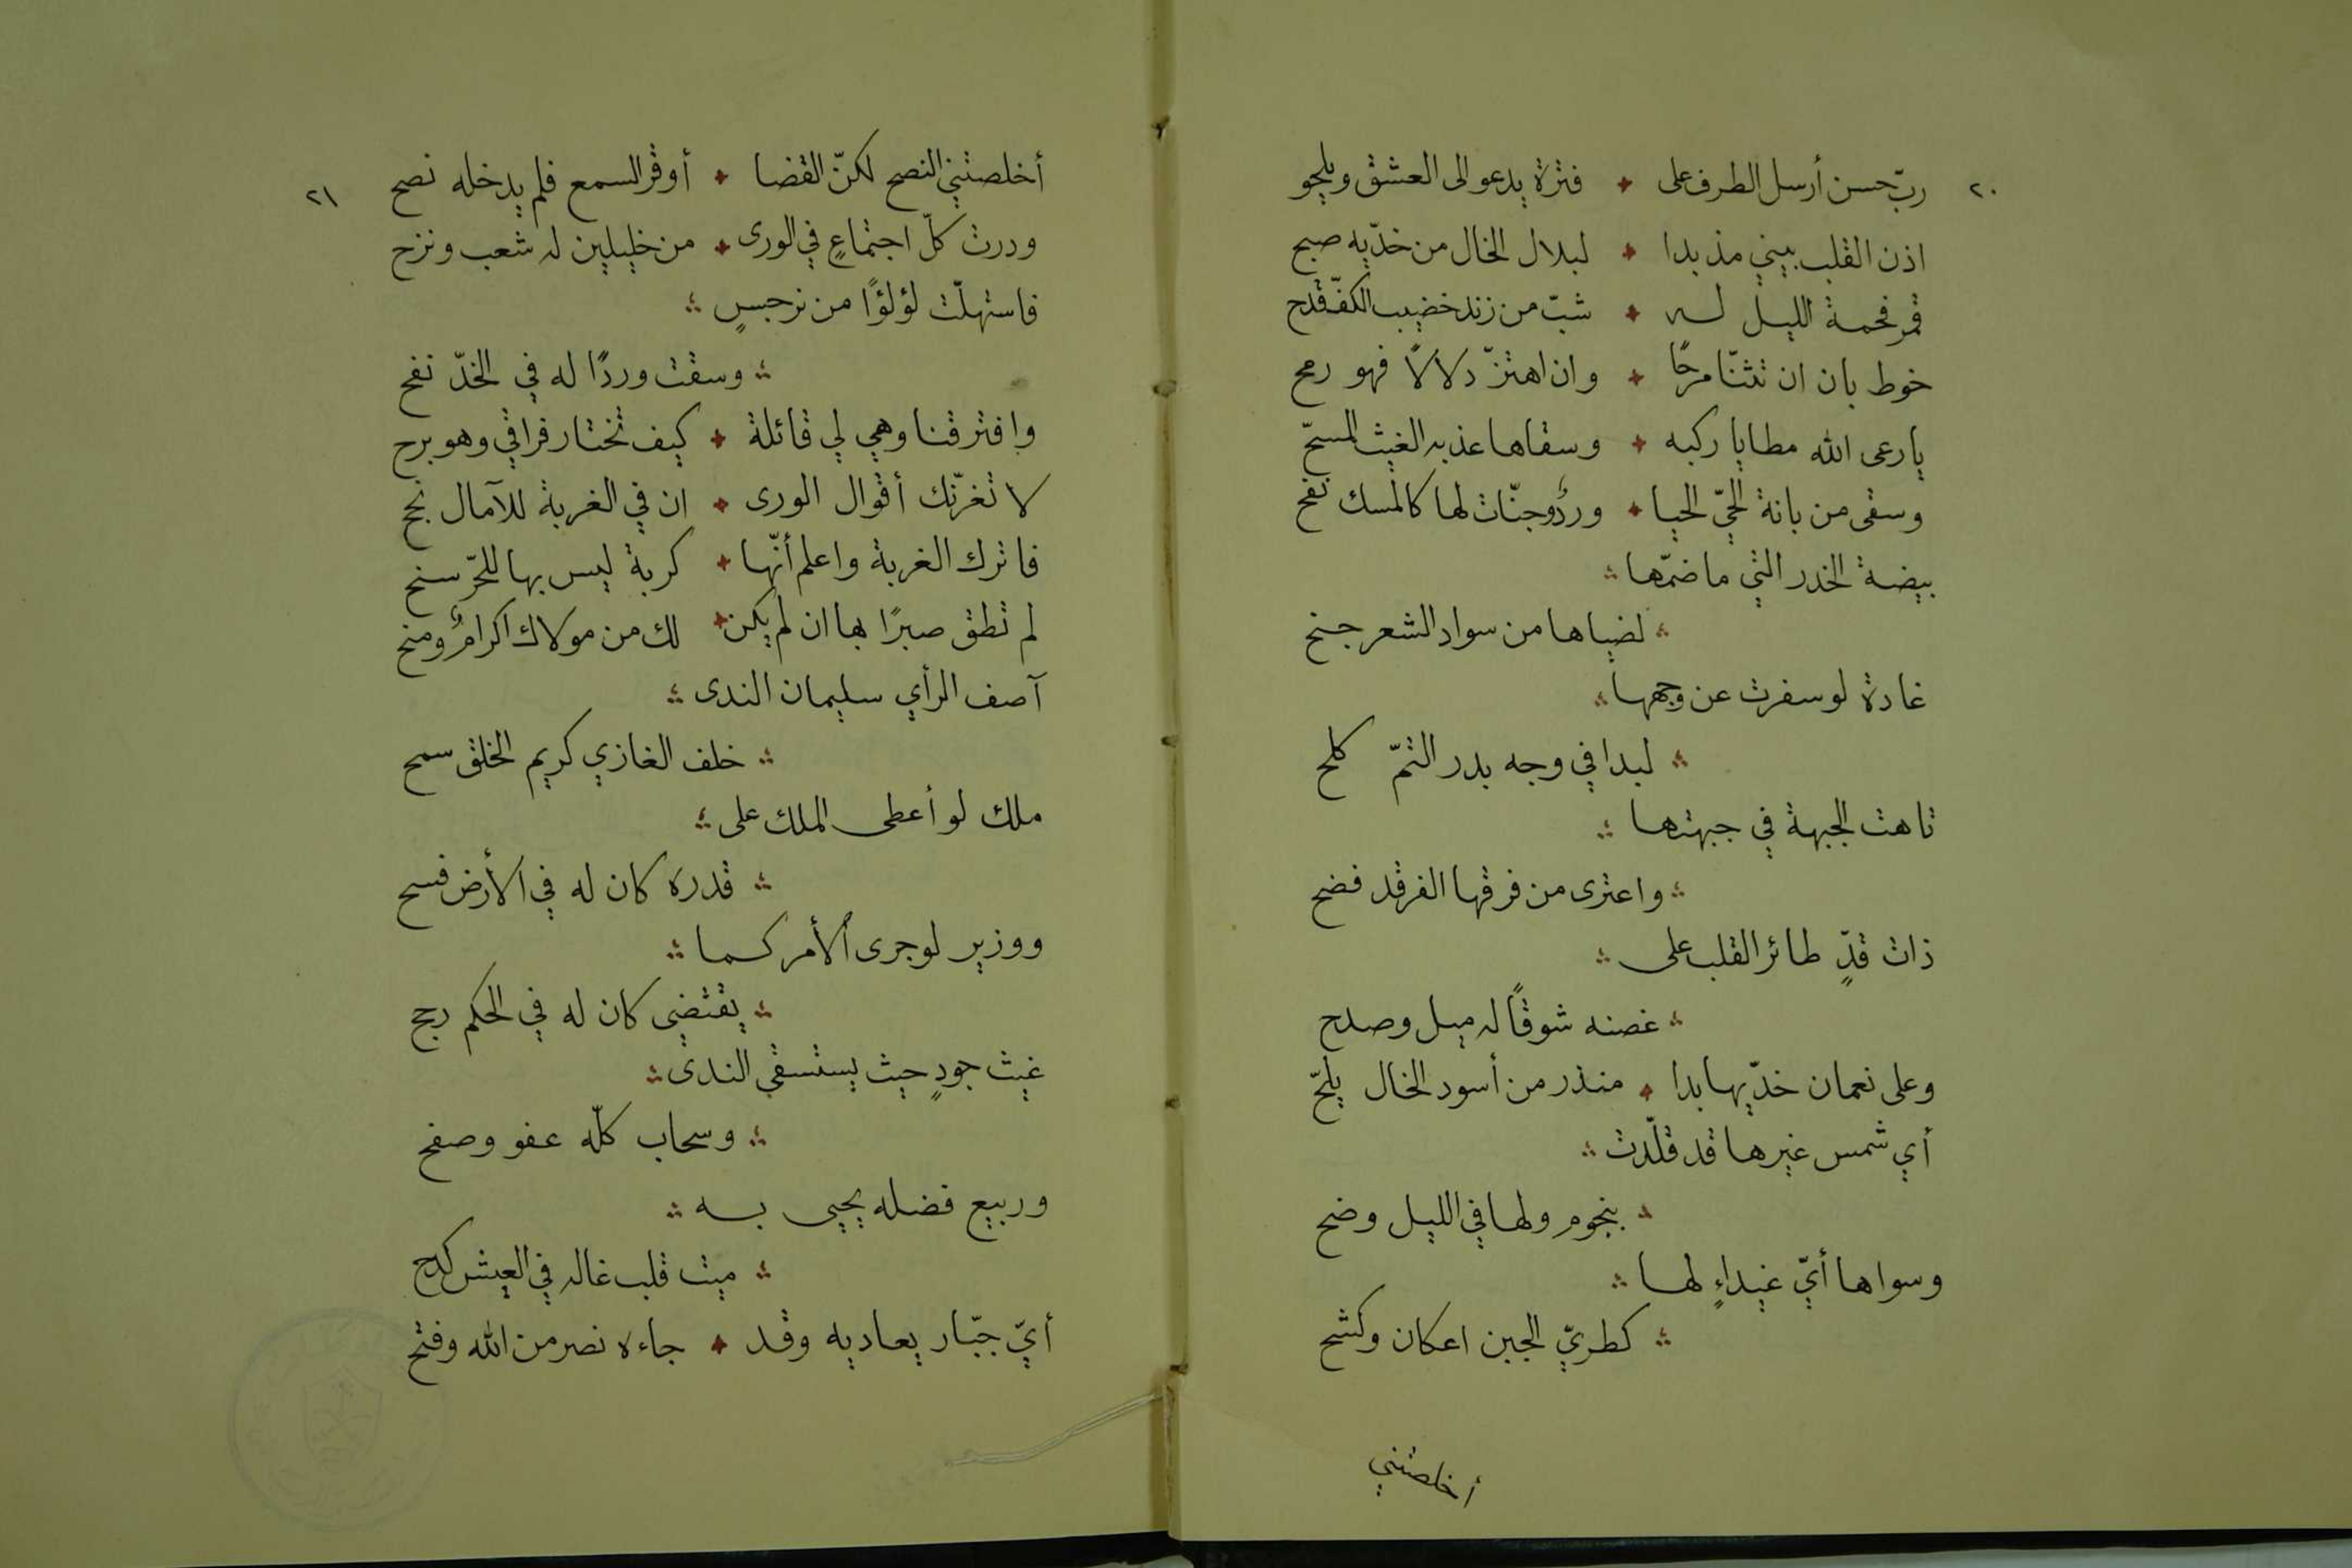 ٢٠
ربّ حسن أرسل الطرف على ٭ فترة يدعو الى العشق ويلجو
اذن القلب بيني مذ بدا ٭ لبلال الخال من خدّيه صبح
قمر فحمة الليل له ٭ شبّ من زند خضيب الكفّ قدح
خوط بان ان تثنّا مرحًا ٭ وان اهتزّ دلالًا فهو رمح
يا رعى الله مطايا ركبه ٭ وسقاها عذبه الغيث المسحّ
وسقى من بانة الحيّ الحيا ٭ وردُ وجنّات لها كالمسك نفح
بيضة الخدر التي ما ضمّها
لضياها من سواد الشعر جنح
غادة لو سفرت عن وجهها
لبدا في وجه بدر التمّ كلح
تاهت الجبهة في جبهتها
واعترى من فرقها الفرقد فضح
ذات قدٍّ طائر القلب على
غصنه شوقًا له ميل وصدح
وعلى نعمان خدّيها بدا ٭ منذر من أسود الخال يلحّ
أي شمس غيرها قد قلّدت
بنجوم ولها في الليل وضح
وسواها أيّ غيداءٍ لها
كطريّ الجبن اعكان وكشح
أخلصتني
٢١
أخلصتني النصح لكنّ القضا ٭ أوقر السمع فلم يدخله نصح
ودرت كلّ اجتماعٍ في الورى ٭ من خليلين له شعب ونزح
فاستهلّت لؤلؤًا من نرجسٍ
وسقت وردًا له في الخدّ نفح
وافترقنا وهي لي قائلة ٭ كيف تختار فراقي وهو برح
لا تغرّنك أقوال الورى ٭ ان في الغربة للآمال نجح
فاترك الغربة واعلم أنّها ٭ كربة ليس بها للحرّ سنح
لم تطق صبرًا بها ان لم يكن ٭ لك من مولاك اكرامٌ ومنح
آصف الرأي سليمان الندى
خلف الغازي كريم الخلق سمح
ملك لو أعطى الملك على
قدره كان له في الأرض فسح
ووزير لو جرى الأمر كما
يقتضي كان له في الحكم رجح
غيث جودٍ حيث يستسقي الندى
وسحاب كلّه عفو وصفح
وربيع فضله يحيى به
ميت قلب غاله في العيش كدح
أيّ جبّار يعاديه وقد ٭ جاءه نصر من الله وفتح